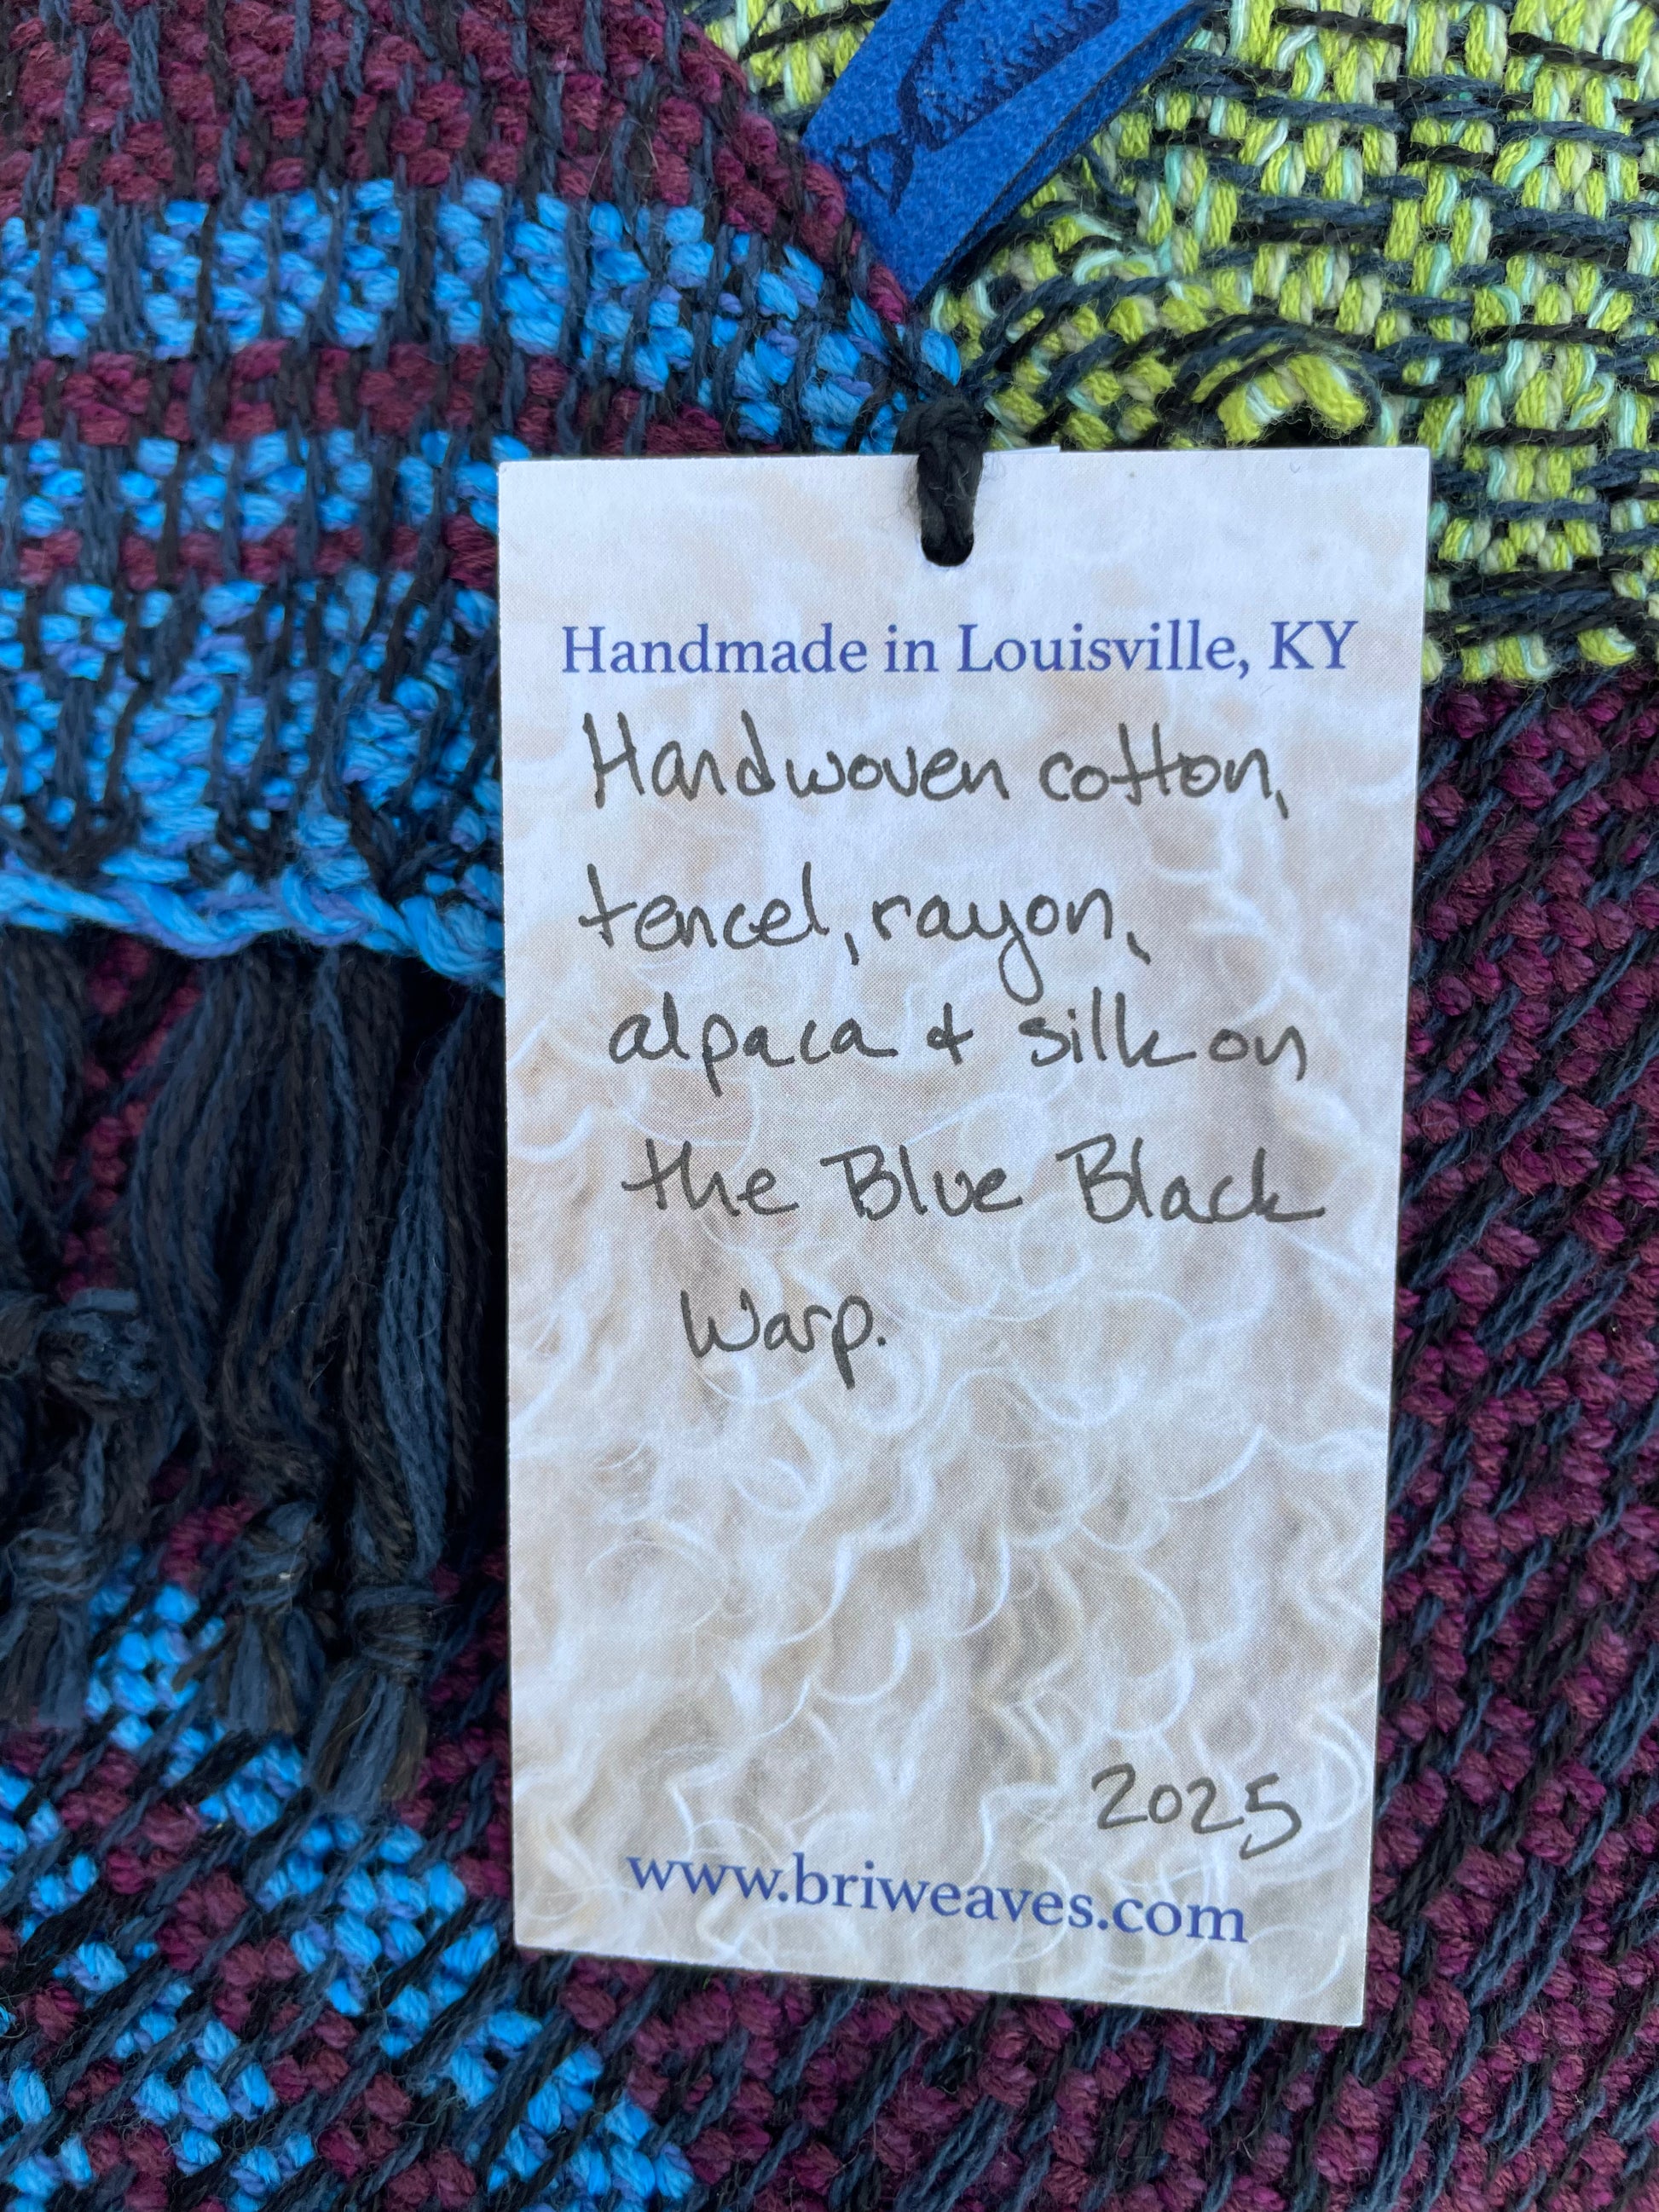 Handmade in Louisville, KY
Handwoven cotton,
tencel, rayon,
alpaca & silk on
the Blue Black
Warp.
2025
www.briweaves.com